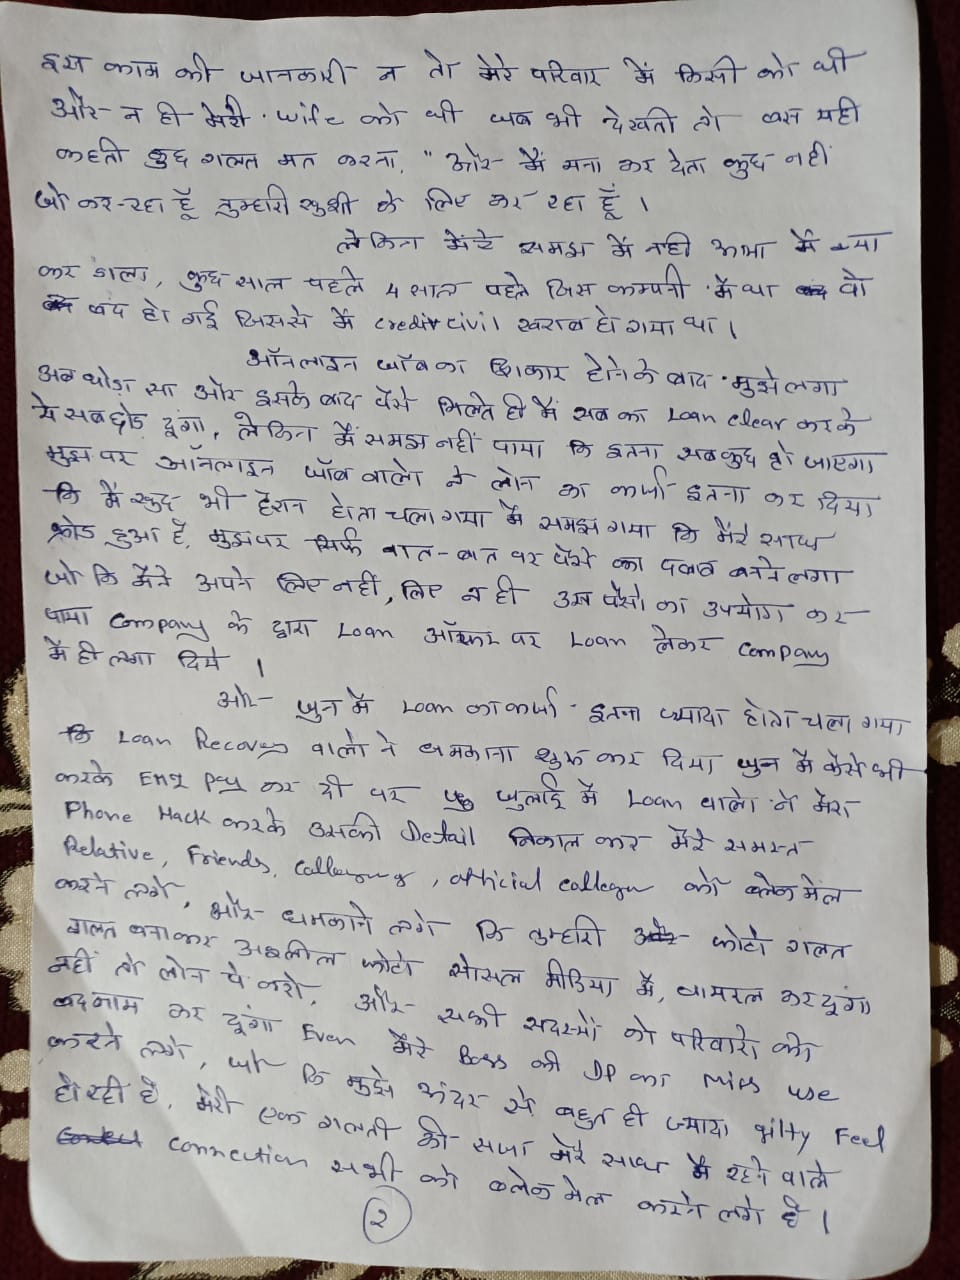 इस काम की जानकारी न तो मेरे परिवार में किसी को थी
और न ही मेरी wife को थी जब भी देखती तो बस यही
कहती कुछ गलत मत करना, " और मैं मना कर देता कुछ नहीं
जो कर रहा हूँ तुम्हारी खुशी के लिए कर रहा हूँ ।
लेकिन मेरे समझ में नहीं आया मैं क्या
कर डाला, कुछ साल पहले 4 साल पहले जिस कम्पनी में था वो
बंद हो गई जिससे में credit civil खराब हो गया था ।
ऑनलाइन जॉब का शिकार होने के बाद मुझे लगा
अब थोड़ा सा और इसके बाद पैसे मिलते ही में सब का Loan clear करके
ये सब छोड़ दूंगा, लेकिन में समझ नहीं पाया कि इतना सबकुछ हो जाएगा
मुझ पर ऑनलाइन जॉब वालो ने लोन का कर्जा इतना कर दिया
कि मै खुद भी हैरान होता चला गया मैं समझ गया कि मेरे साथ
फ्रोड हुआ है, मुझपर सिर्फ बात-बात पर पैसे का दबाब बनने लगा
जो कि मैंने अपने लिए नहीं, लिए न ही उस पैसो का उपयोग कर
पाया Company के द्वारा Loan ऑफर पर Loan लेकर Company
में ही लगा दिये ।
और जुन में Loan का कर्जा इतना ज्यादा होता चला गया
कि Loan Recovery वालो ने धमकाना शुरू कर दिया जुन में कैसे भी
करके EMI Pay कर दी पर जुलाई में Loan वालो ने मेरा
Phone Hack करके उसकी Detail निकाल कर मेरे समस्त
Relative, Friends, official को ब्लेकमेल
करने लगे, और धमकाने लगे कि तुम्हारी फोटो गलत
गलत बनाकर अश्लील फोटो सोसल मीडिया में, वायरल कर दूंगा
नहीं तो लोन पे करो, और सभी सदस्यों को परिवारो को
बदनाम कर दूंगा Even मेरे Boss की DP का miss use
करने लगे, जो कि मुझे अंदर से बहुत ही ज्यादा guilty Feel
हो रही है, मेरी एक गलती की सजा मेरे साथ में रहने वाले
connection सभी को ब्लेकमेल करने लगे है ।
२